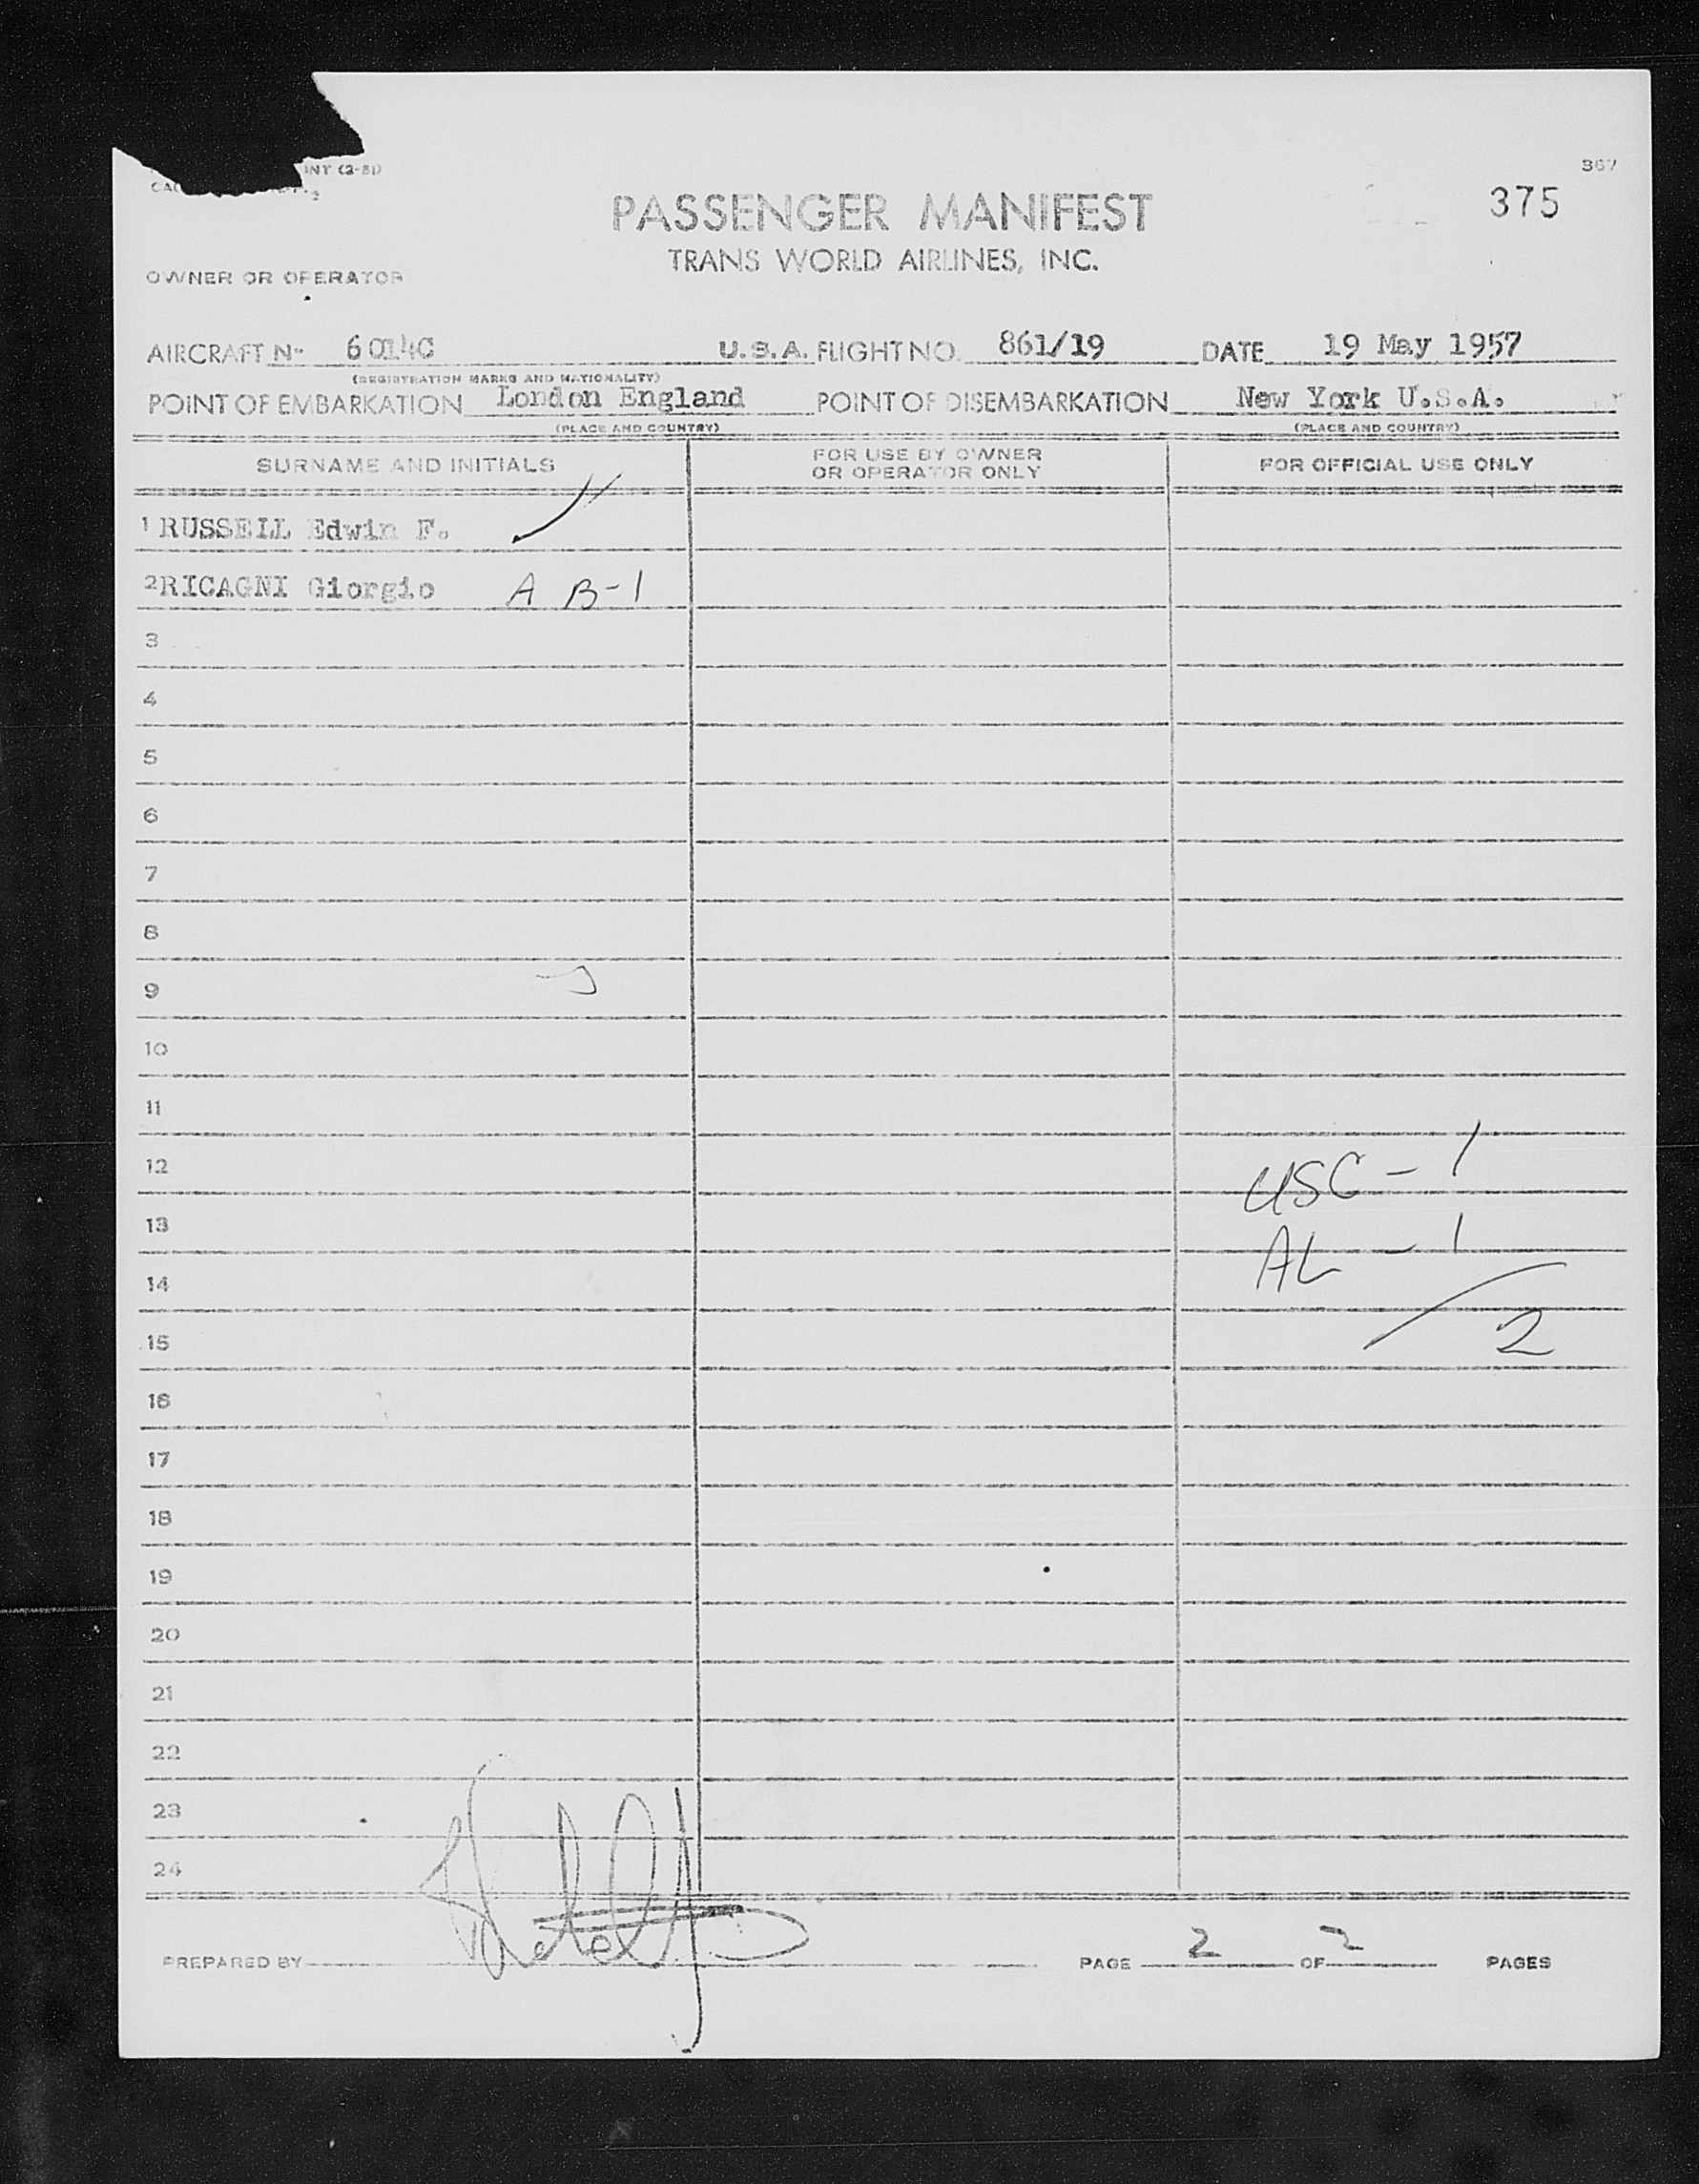 INT (2-51)
367
375
PASSENGER MANIFEST
TRANS WORLD AIRLINES, INC.
OWNER OR OPERATOR
AIRCRAFT No 6014C U.S.A. FLIGHT NO. 861/19 DATE 19 May 1957
(REGISTRATION MARKS AND NATIONALITY)
POINT OF EMBARKATION London England POINT OF DISEMBARKATION New York U.S.A.
(PLACE AND COUNTRY) (PLACE AND COUNTRY)
SURNAME AND INITIALS FOR USE BY OWNER OR OPERATOR ONLY FOR OFFICIAL USE ONLY
1 RUSSELL Edwin F.
2 RICAGNI Giorgio A B-1
3
4
5
6
7
8
9
10
11
12 USC - 1
13 AL - 1
14
15 2
16
17
18
19
20
21
22
23
24
PREPARED BY PAGE 2 OF 2 PAGES